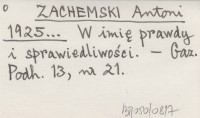 o ZACHEMSKI Antoni
1925... W imię prawdy
i sprawiedliwości. – Gaz.
Podh. 13, nr 21.